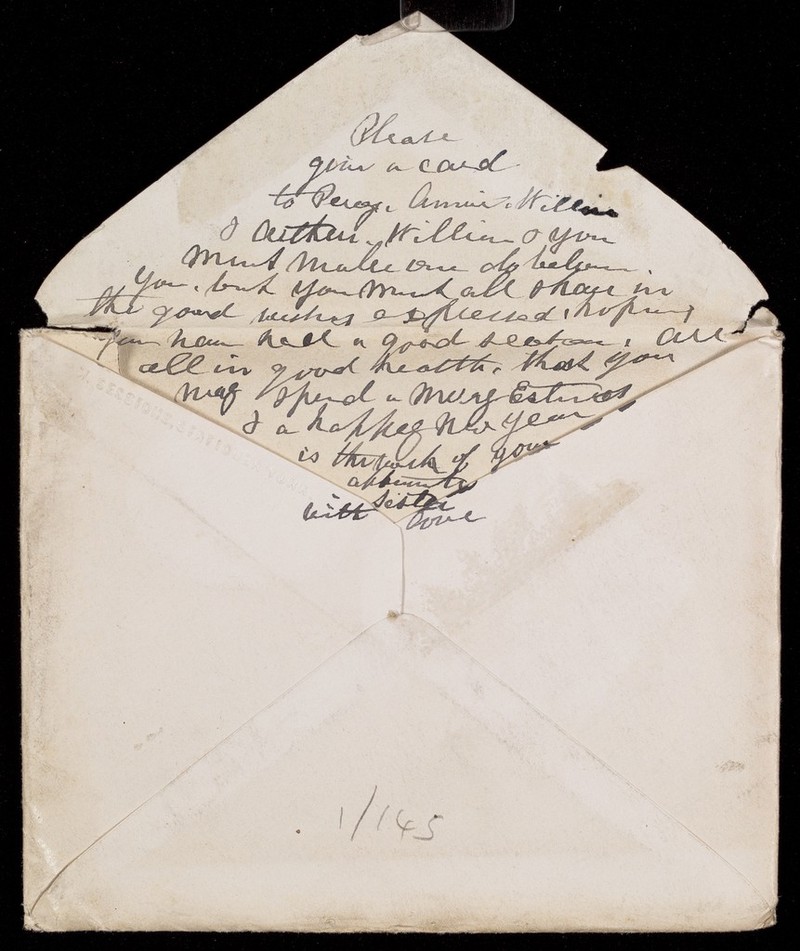 Please
give a card
to Percy, Annie, Willie
& Arthur, William & you
must make one do between
you, but you must all share in
the good wishes expressed, hoping
you have had a good season, All
all in good health, that you
may spend a Merry
& a happy New Year
is the wish of your
Sister
with love
1/145